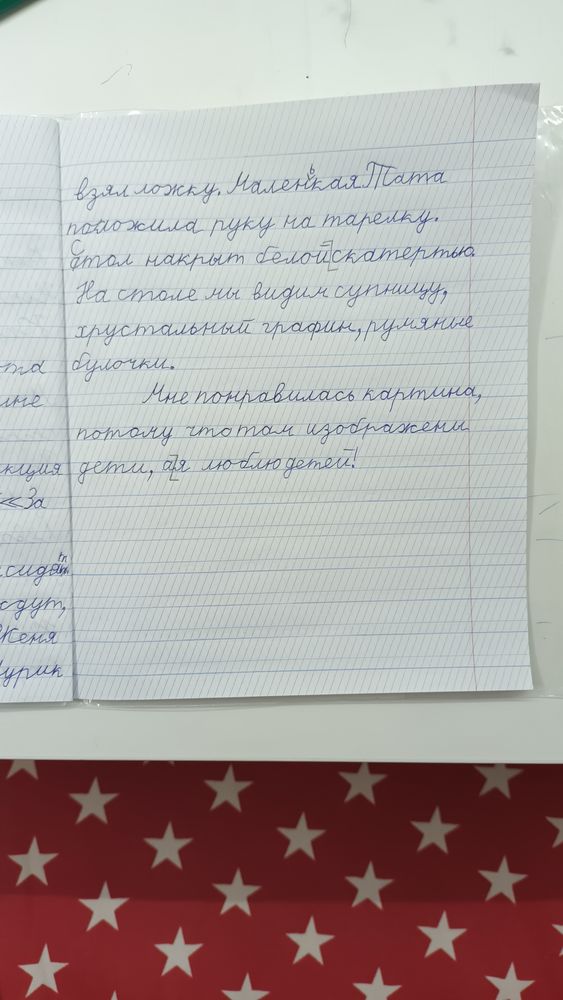 взял ложку. Маленькая Тата
положила руку на тарелку.
Стол накрыт белой скатертью.
На столе мы видим супницу,
хрустальный графин, румяные
булочки.
Мне понравилась картина,
потому что там изображены
дети, а я люблю детей!
ота
ине
кция
«За
сидят
ждут,
Женя
Шурик